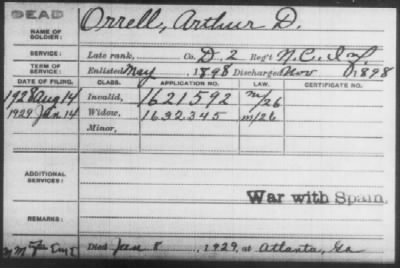 DEAD
NAME OF SOLDIER: Orrell, Arthur D.
SERVICE: Late rank, Co. D. 2 Reg't N.C. Inf.
TERM OF SERVICE: Enlisted May , 1898 Discharged Nov , 1898
DATE OF FILING. CLASS. APPLICATION NO. LAW. CERTIFICATE NO.
1928 Aug 14 Invalid, 1621592 m/26
1929 Jan 14 Widow, 1632345 m/26
Minor,
ADDITIONAL SERVICES:
War with Spain.
REMARKS:
Died Jan 8 , 1929, at Atlanta, Ga